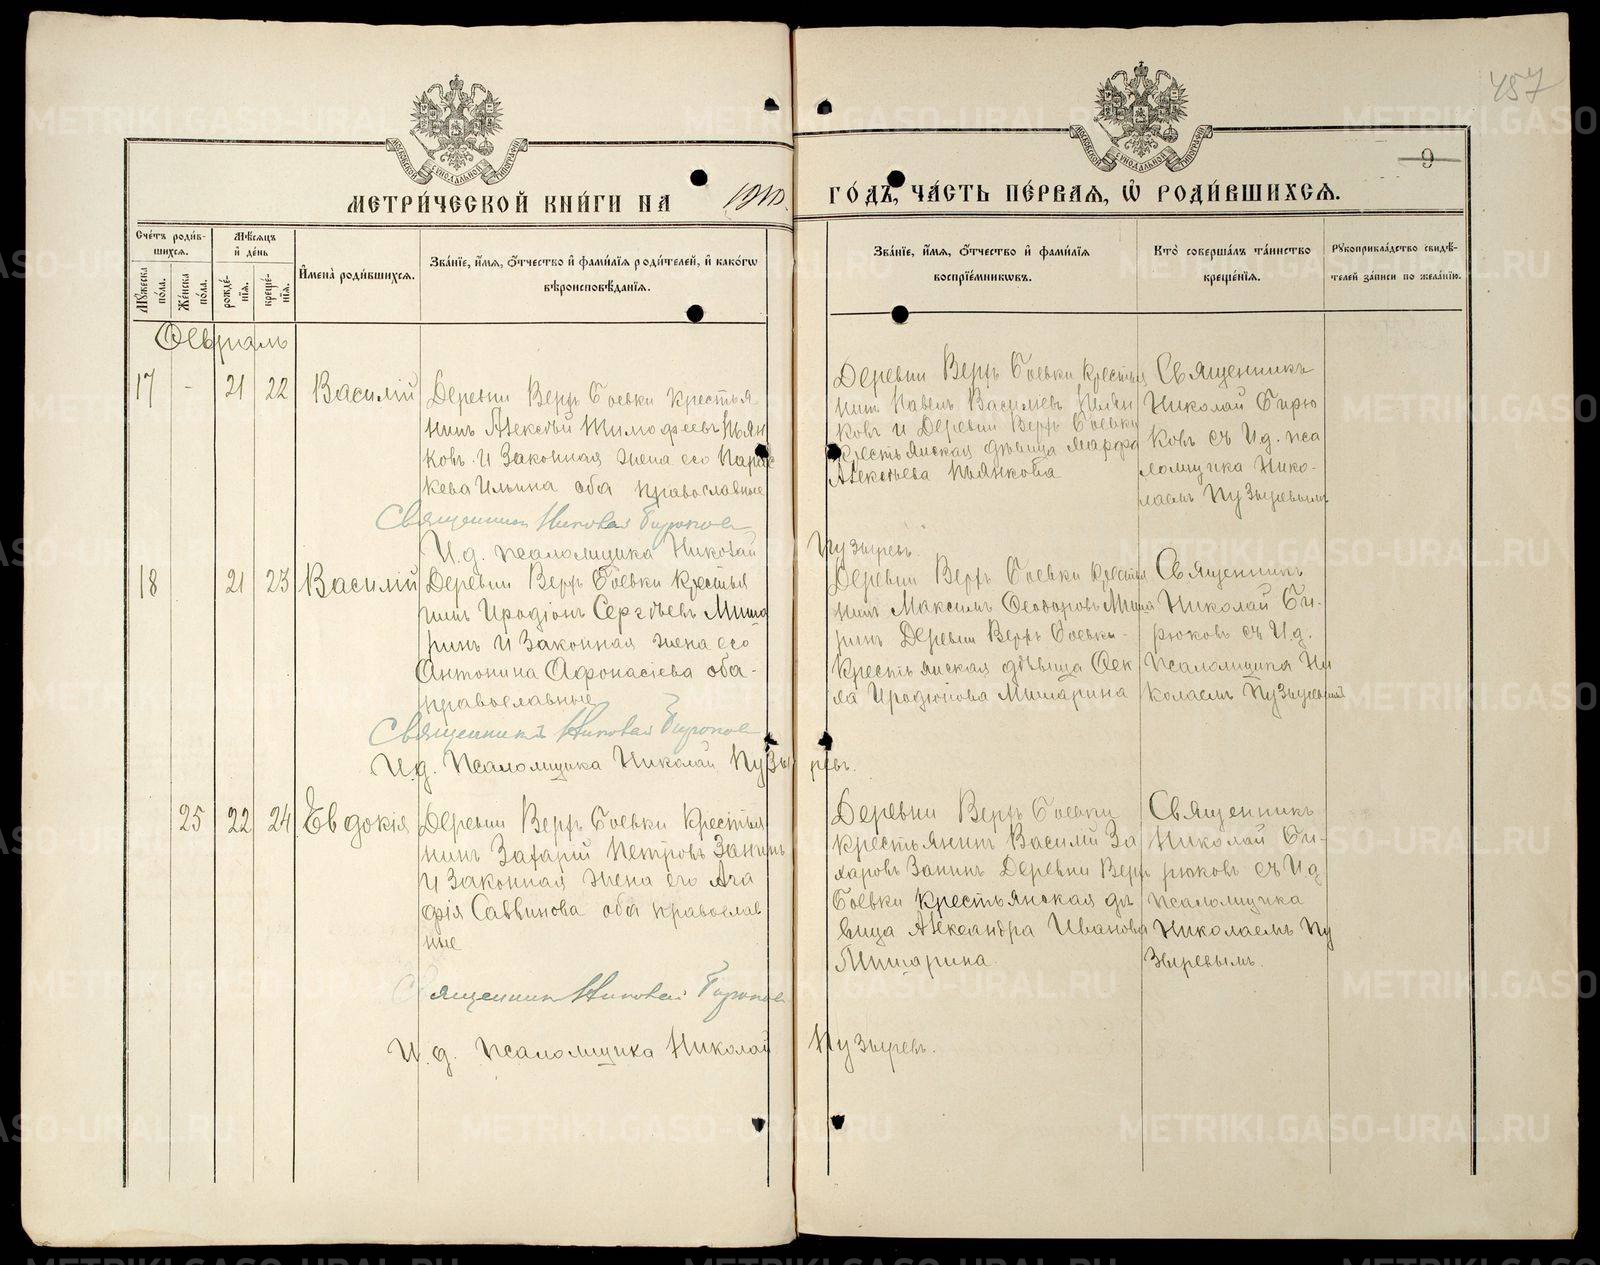 457
9
МЕТРИ́ЧЕСКОЙ КНИ́ГИ НА 1910. ГО́ДЪ, ЧА́СТЬ ПЕ́РВАЯ, Ѽ РОДИ́ВШИХСЯ.
Сче́тъ роди́в-
шихся.
Мꙋ́жеска по́ла.
Же́нска по́ла.
Мѣ́сяцъ
и҆ де́нь
рожде́-
нїя.
креще́-
нїя.
И҆мена̀ роди́вшихся.
Зва́нїе, и҆́мя, ѻ҆́тчество и҆ фами́лїя роди́телей, и҆ како́гѡ
вѣроисповѣ́данїя.
Зва́нїе, и҆́мя, ѻ҆́тчество и҆ фами́лїя
воспрїе́мникѡвъ.
Кто̀ соверша́лъ та́инство
креще́нїя.
Рꙋкоприкла́дство свидѣ́-
телей за́писи по жела́нїю.
Февраль
17 - 21 22 Василій
Деревни Верх Боевки крестья
нинъ Алексѣй Тимофеевъ Пьян
ковъ и законная жена его Парас
кева Ильина оба православные
Деревни Верхъ Боевки крестья
нинъ Павелъ Василіевъ Пьян
ковъ и Деревни Верхъ Боевки
крестьянская дѣвица Марфа
Алексѣева Пьянкова
Священникъ
Николай Бирю
ковъ съ И.д. пса
ломщика Нико-
лаемъ Пузыревымъ
Священник Николай Бирюков
И.д. псаломщика Николай Пузыревъ.
18 21 23 Василій
Деревни Верхъ Боевки крестья
нинъ Иродіонъ Сергѣевъ Миша
ринъ и законная жена его
Антонина Афонасіева оба-
православные
Деревни Верхъ Боевки крестья
нинъ Максимъ Феодоровъ Миша
ринъ Деревни Верхъ Боевки-
крестьянская дѣвица Фек
ла Иродіонова Мишарина
Священникъ
Николай Би-
рюковъ съ И.д.
псаломщика Ни
колаемъ Пузыревымъ
Священникъ Николай Бирюков
И.д. псаломщика Николай Пузыревъ.
25 22 24 Евдокія
Деревни Верхъ Боевки крестья
нинъ Захарій Петровъ Занинъ
и законная жена его Ага
фія Саввинова оба православ
ные
Деревни Верхъ Боевки
крестьянинъ Василій За
харовъ Занинъ Деревни Верхъ
Боевки крестьянская дѣ
вица Александра Иванова
Мишарина.
Священникъ
Николай Би-
рюковъ съ И.д.
псаломщика
Николаемъ Пу
зыревымъ.
Священник Николай Бирюков
И.д. псаломщика Николай Пузыревъ.
METRIKI.GASO-URAL.RU